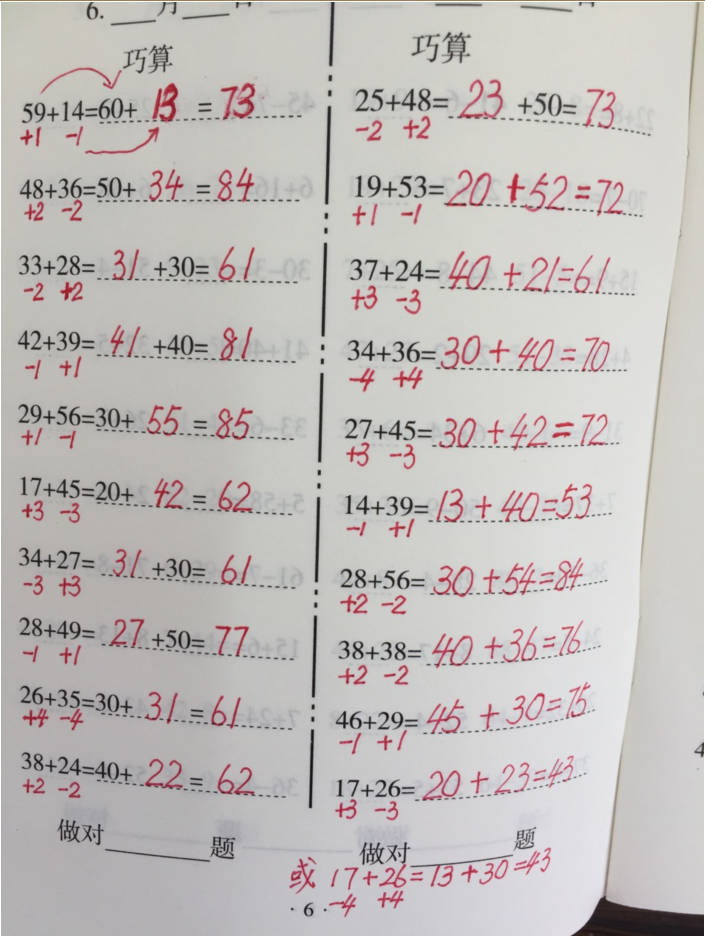 6. ___月___
巧算
59+14=60+ 13 = 73
+1 -1
48+36=50+ 34 = 84
+2 -2
33+28= 31 +30= 61
-2 +2
42+39= 41 +40= 81
-1 +1
29+56=30+ 55 = 85
+1 -1
17+45=20+ 42 = 62
+3 -3
34+27= 31 +30= 61
-3 +3
28+49= 27 +50= 77
-1 +1
26+35=30+ 31 = 61
+4 -4
38+24=40+ 22 = 62
+2 -2
做对______题
巧算
25+48= 23 +50= 73
-2 +2
19+53= 20 + 52 = 72
+1 -1
37+24= 40 + 21 = 61
+3 -3
34+36= 30 + 40 = 70
-4 +4
27+45= 30 + 42 = 72
+3 -3
14+39= 13 + 40 = 53
-1 +1
28+56= 30 + 54 = 84
+2 -2
38+38= 40 + 36 = 76
+2 -2
46+29= 45 + 30 = 75
-1 +1
17+26= 20 + 23 = 43
+3 -3
做对________题
或 17+26=13+30=43
-4 +4
· 6 ·